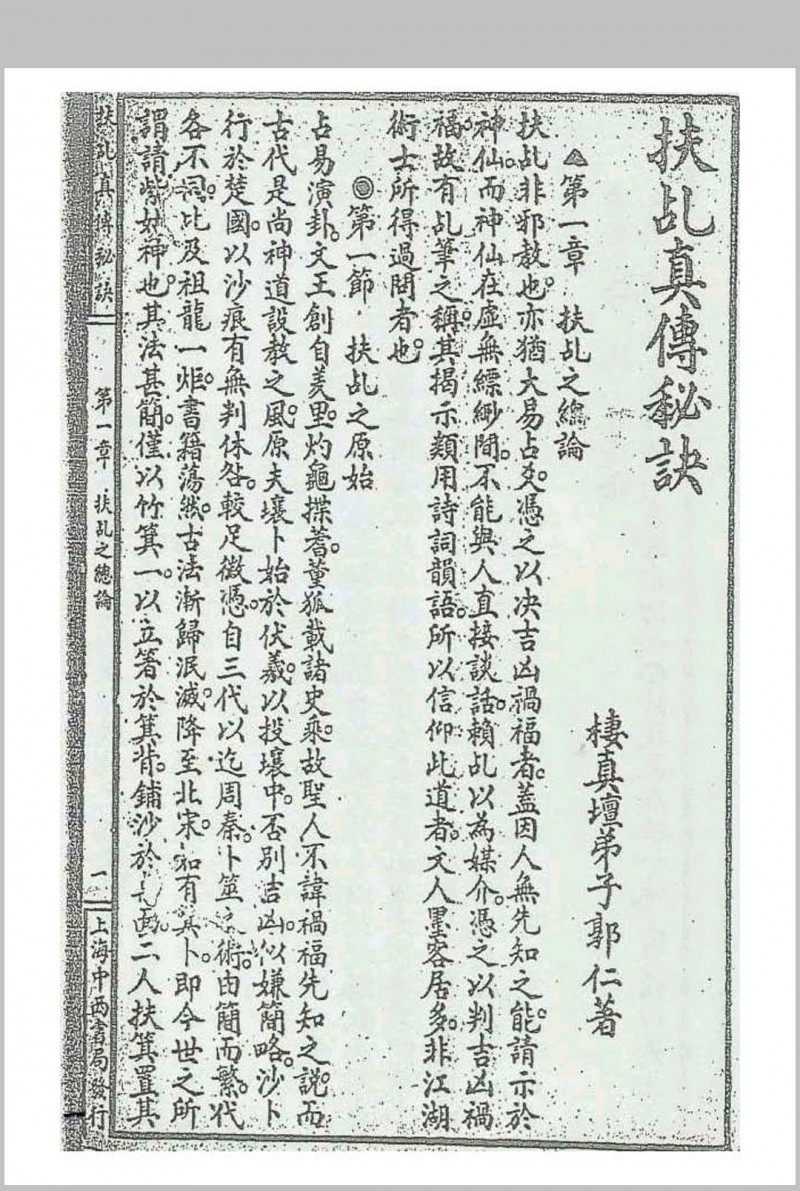 扶乩真傳秘訣
棲真壇弟子郭仁著
第一章 扶乩之總論
扶乩非邪教也。亦猶大易占爻。憑之以決吉凶禍福者。蓋因人無先知之能。請示於
神仙。而神仙在虛無縹緲間。不能與人直接談話。賴乩以為媒介。憑之以判吉凶禍
福。故有乩筆之稱。其揭示類用詩詞韻語。所以信仰此道者。文人墨客居多。非江湖
術士所得過問者也。
◎第一節 扶乩之原始
占易演卦。文王創自羑里。灼龜揲蓍。董狐載諸史乘。故聖人不諱禍福先知之說。而
古代是尚神道設教之風。原夫壤卜始於伏羲。以投壤中否別吉凶。似嫌簡略。沙卜
行於楚國。以沙痕有無判休咎。較足徵憑。自三代以迄周秦。卜筮之術。由簡而繁。代
各不同。比及祖龍一炬。書籍蕩然。古法漸歸泯滅。降至北宋。始有箕卜。即今世之所
謂請紫姑神也。其法甚簡。僅以竹箕一。以立箸於箕背。鋪沙於 面。二人扶箕置其
扶乩真傳秘訣
第一章 扶乩之總論
一
上海中西書局發行